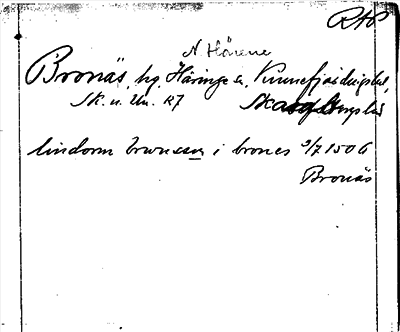 RAP
N. Härene
Bronäs, hg, Häringe sn, Kinnefjärdings hd,
Sk. o. Un. 27 Skaraborgs län
lindorm brunsson i brones 9/7 1506
Bronäs